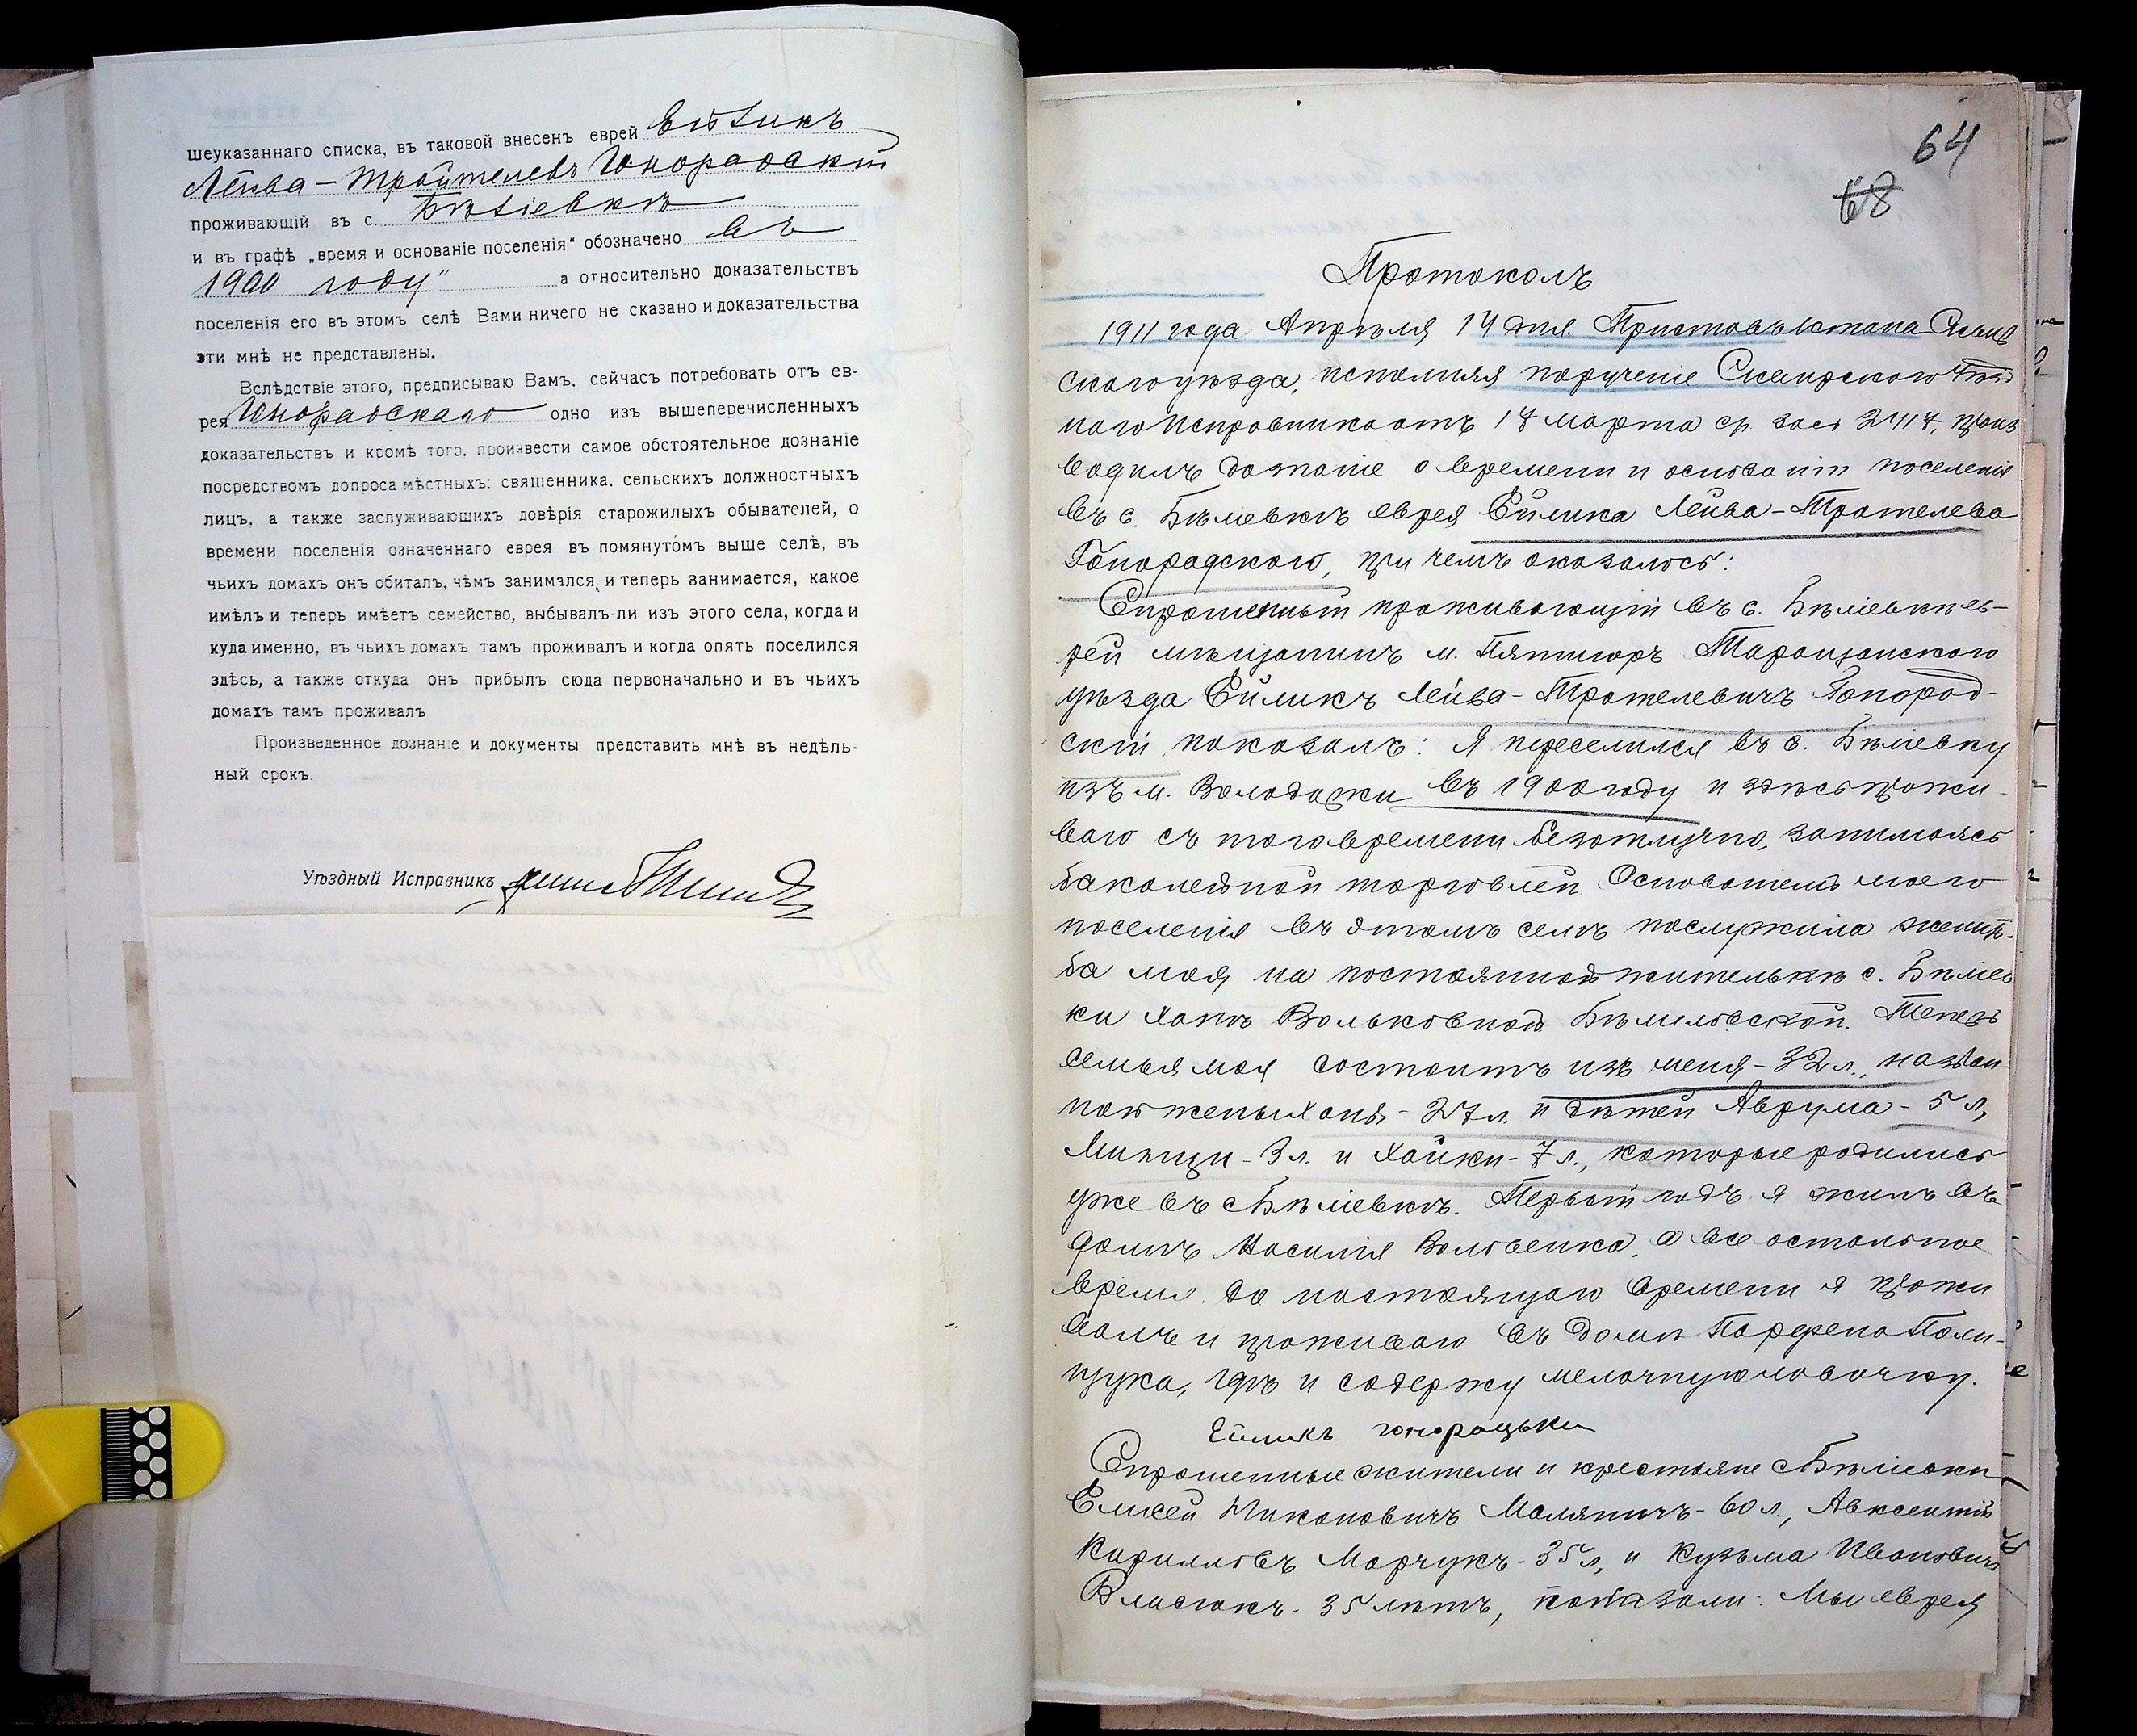 шеуказаннаго списка, въ таковой внесенъ еврей Ейликъ
Лейва-Тройтелевъ Гонорадскій
проживающій въ с. Бѣліевкѣ
и въ графѣ „время и основаніе поселенія" обозначено въ
1900 году" а относительно доказательствъ
поселенія его въ этомъ селѣ Вами ничего не сказано и доказательства
эти мнѣ не представлены.
Вслѣдствіе этого, предписываю Вамъ, сейчасъ потребовать отъ ев-
рея Гонорадскаго одно изъ вышеперечисленныхъ
доказательствъ и кромѣ того, произвести самое обстоятельное дознаніе
посредствомъ допроса мѣстныхъ: священника, сельскихъ должностныхъ
лицъ, а также заслуживающихъ довѣрія старожилыхъ обывателей, о
времени поселенія означеннаго еврея въ помянутомъ выше селѣ, въ
чьихъ домахъ онъ обиталъ, чѣмъ занимался и теперь занимается, какое
имѣлъ и теперь имѣетъ семейство, выбывалъ-ли изъ этого села, когда и
куда именно, въ чьихъ домахъ тамъ проживалъ и когда опять поселился
здѣсь, а также откуда онъ прибылъ сюда первоначально и въ чьихъ
домахъ тамъ проживалъ
Произведенное дознаніе и документы представить мнѣ въ недѣль-
ный срокъ.
Уѣздный Исправникъ
64
68
Протоколъ
1911 года Апрѣля 14 дня. Приставъ стана Сквир
скаго уѣзда, исполняя порученіе Сквирскаго Уѣзд
наго Исправника отъ 17 марта ср. за № 2417, произ
водилъ дознаніе о времени и основаніи поселенія
въ с. Бѣліевкѣ еврея Ейлика Лейва-Тротелева
Гонорадскаго, при чемъ оказалось:
Спрошенный проживающій въ с. Бѣліевкѣ ев-
рей мѣщанинъ м. Пятигоръ Таращанскаго
уѣзда Ейликъ Лейва-Тротелевичъ Гонорад-
скій показалъ: Я переселился въ с. Бѣліевку
изъ м. Володарки въ 1900 году и здѣсь прожи-
ваю съ того времени безотлучно, занимаясь
бакалейной торговлей. Основаніемъ моего
поселенія въ этомъ селѣ послужила женить-
ба моя на постоянной жителькѣ с. Бѣліев
ки Ханѣ Вольковной Бѣлиловской. Теперь
семья моя состоитъ изъ меня-32 л., назван-
ной жены Ханы-27 л. и дѣтей Аврума-5 л,
Минци-3 л. и Хайки-7 л., которые родились
уже въ с Бѣліевкѣ. Первый годъ я жилъ въ
домѣ Василія Вольвенка, а все остальное
время до настоящаго времени я прожи
валъ и проживаю въ домѣ Парфена Поли-
щука, гдѣ и содержу мелочную лавочку.
Ейликъ гонорацьки
Спрошенные жители и крестьяне с Бѣліевки
Елисей Никоновичъ Маляничъ-60 л., Авксентій
Кирилловъ Марчукъ-35 л, и Кузьма Ивановичъ
Власюкъ-35 лѣтъ, показали: Мы еврея